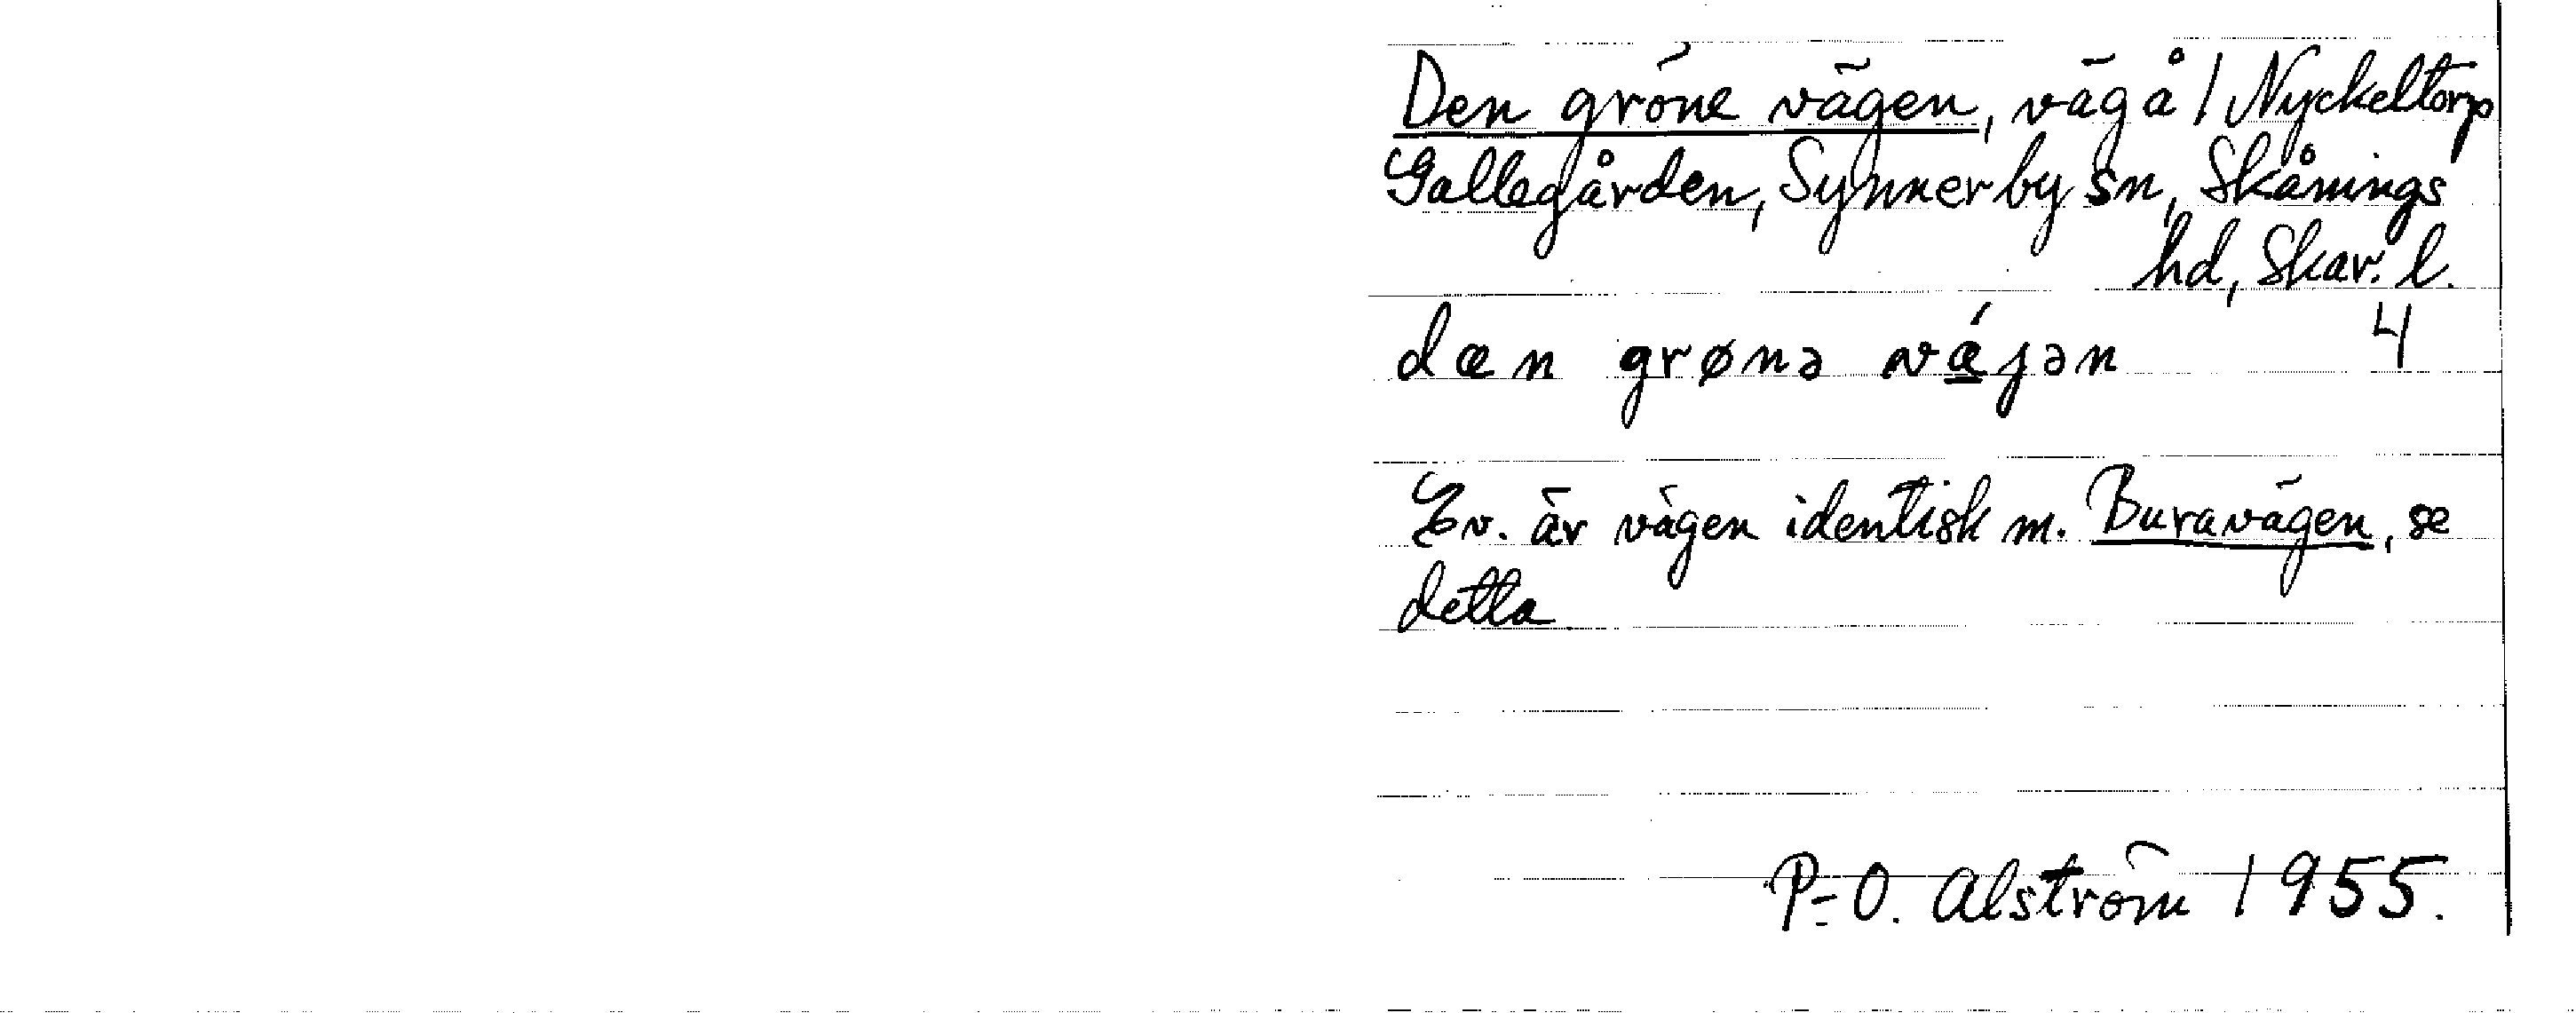 Den gröne vägen, väg å 1 Nyckeltorp
Gallegården, Synnerby sn, Skånings
hd, Skar. l.
dæn grønə vǽ̲jən 4
Ev. är vägen identisk m. Buravägen, se
detta
P-O. Alström 1955.